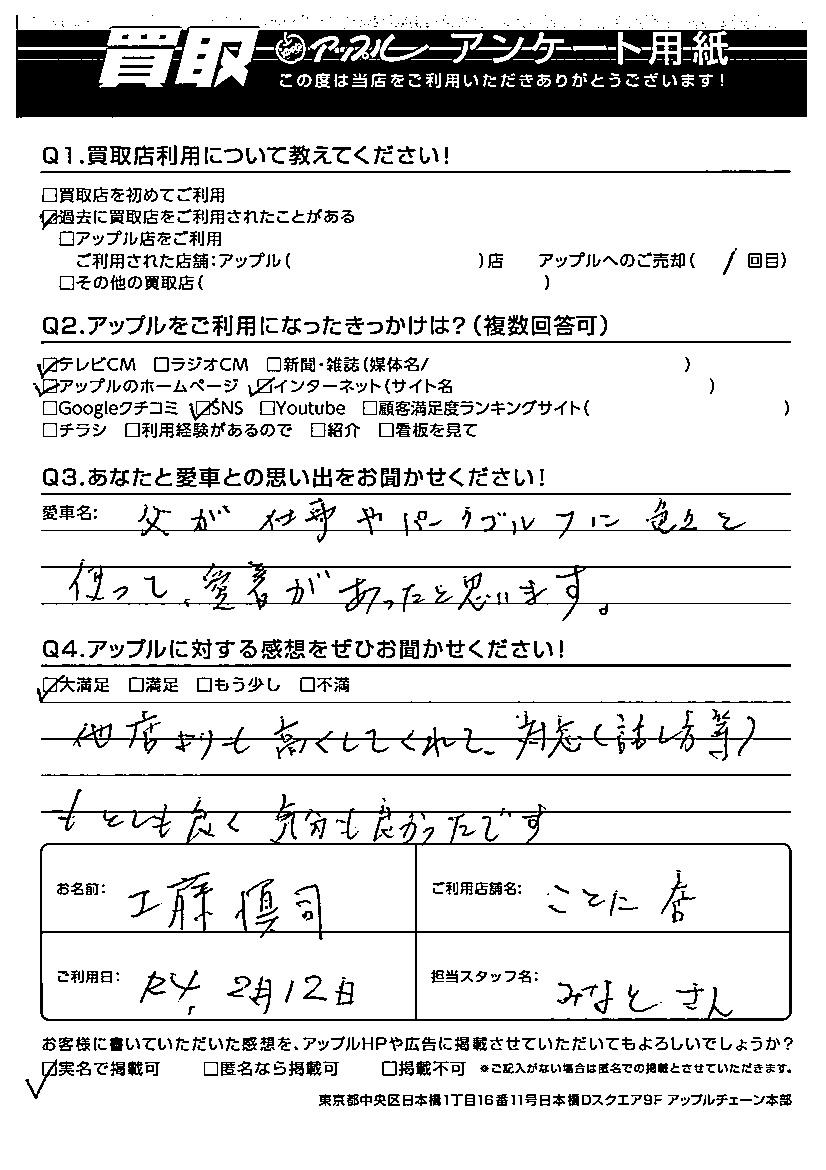 買取 アップル アンケート用紙
この度は当店をご利用いただきありがとうございます!
Q1.買取店利用について教えてください!
□買取店を初めてご利用
☑過去に買取店をご利用されたことがある
□アップル店をご利用
ご利用された店舗:アップル( )店 アップルへのご売却( / 回目)
□その他の買取店( )
Q2.アップルをご利用になったきっかけは?(複数回答可)
☑テレビCM □ラジオCM □新聞・雑誌(媒体名/ )
☑アップルのホームページ ☑インターネット(サイト名 )
□Googleクチコミ ☑SNS □Youtube □顧客満足度ランキングサイト( )
□チラシ □利用経験があるので □紹介 □看板を見て
Q3.あなたと愛車との思い出をお聞かせください!
愛車名: 父が仕事やパークゴルフに色々と
使って、愛着があったと思います。
Q4.アップルに対する感想をぜひお聞かせください!
☑大満足 □満足 □もう少し □不満
他店よりも高くしてくれて、対応(話し方等)
もとても良く気分も良かったです
お名前: 工藤慎司 ご利用店舗名: ことに店
ご利用日: R4, 2月12日 担当スタッフ名: みなとさん
お客様に書いていただいた感想を、アップルHPや広告に掲載させていただいてもよろしいでしょうか?
☑実名で掲載可 □匿名なら掲載可 □掲載不可 ※ご記入がない場合は匿名での掲載とさせていただきます。
東京都中央区日本橋1丁目16番11号日本橋Dスクエア9F アップルチェーン本部